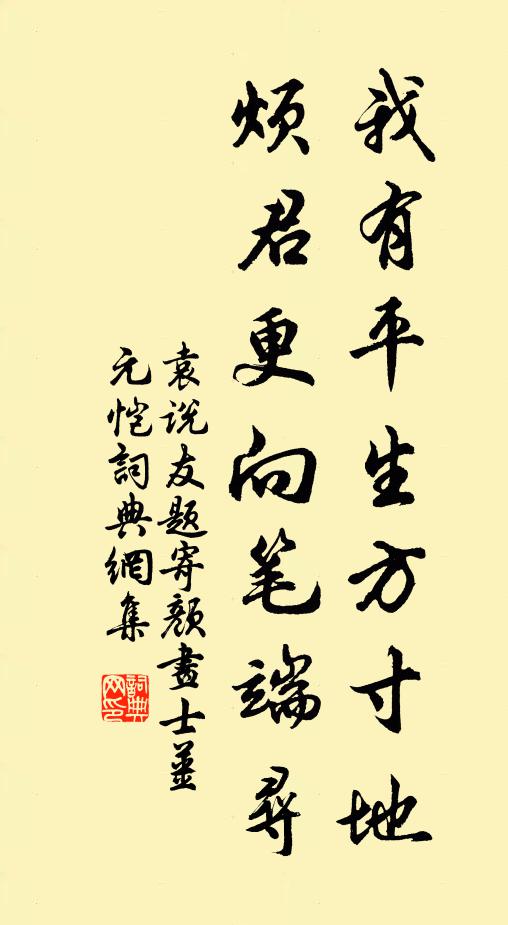 我有平生方寸地
烦君更向笔端尋
袁说友题寄颜畫士薑
元恺詞典網集
詞典网印